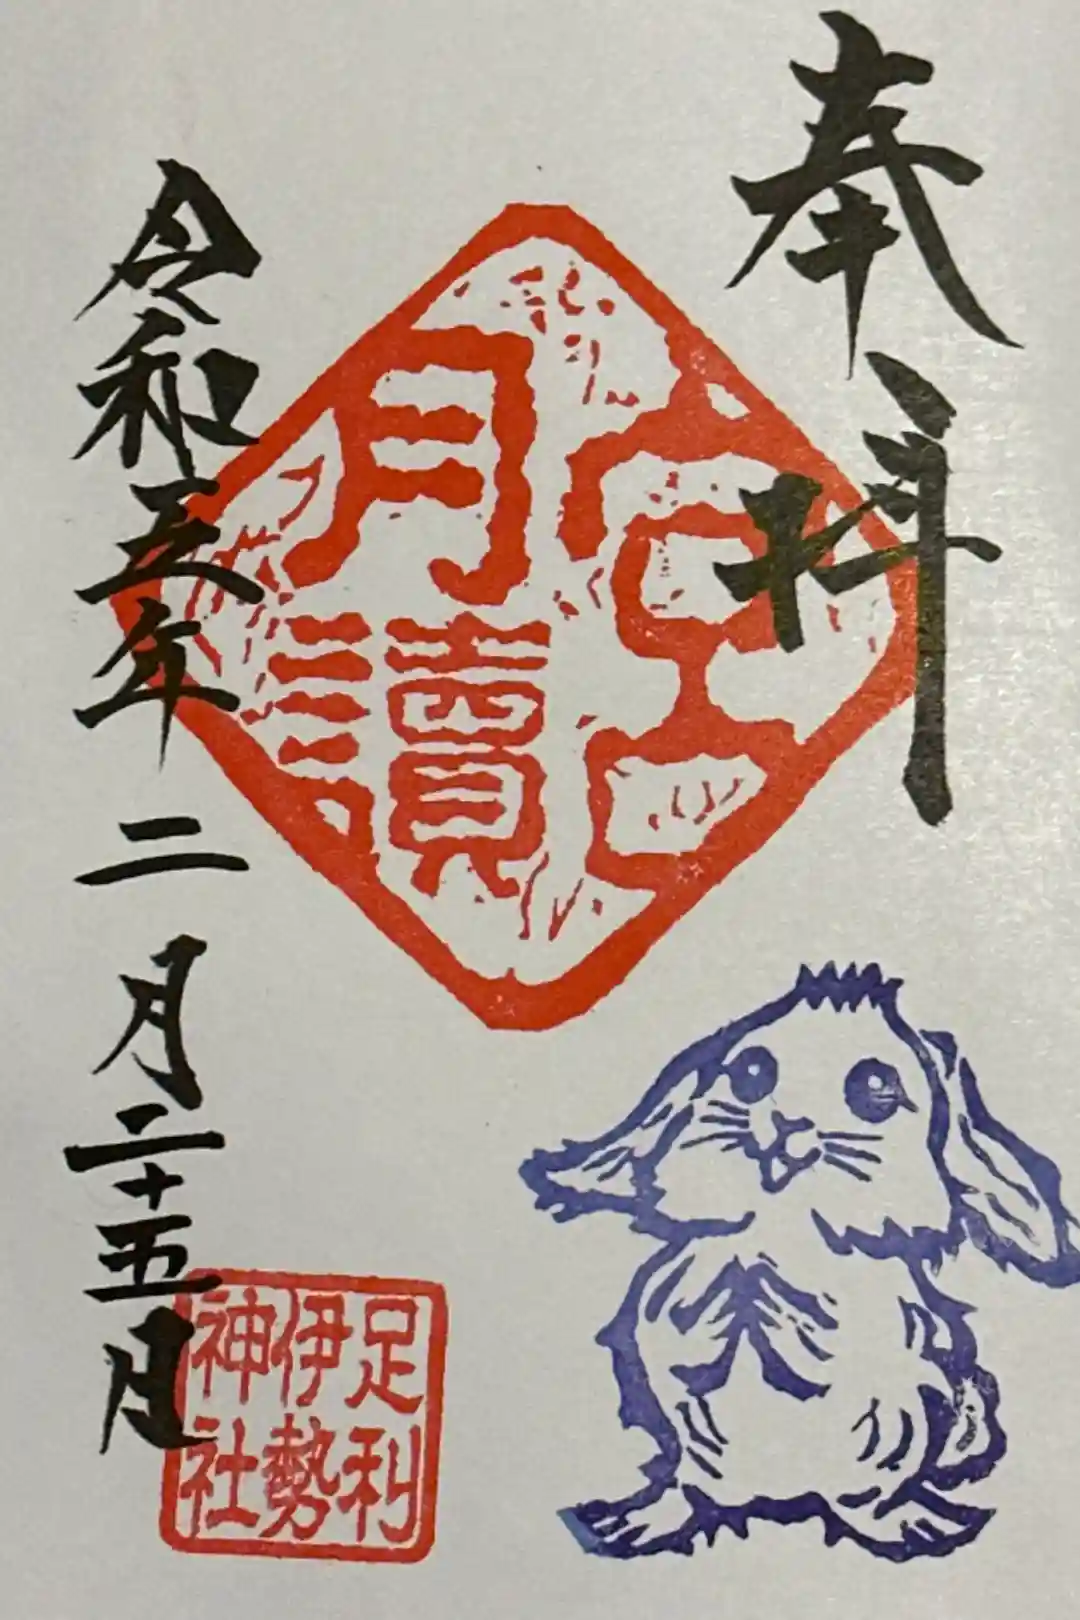 奉拝
月讀
宮
令和五年二月二十五日
足利
伊勢
神社